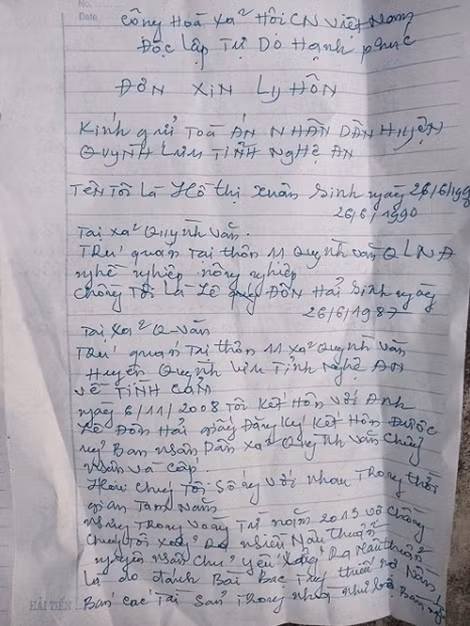 No.
Date
Công Hoà Xa² Hôi CN Việt Nam
Độc Lập Tự Do Hạnh phuc
ĐƠN XIN Ly HÔN
Kính gửi Toà ÁN NHÂN DÂN HUYỆN
QUYNH LƯU TỈNH NGHệ AN
TêN Tôi Là Hồ thị xuân Sinh ngày 26/6/199
26/6/1990
Tại xa² Quỳnh văn.
TRú quán Tại thôn 11 Quỳnh văn Q L N A
nghề nghiệp nông nghiệp
Chồng Tôi Là Lê ĐÔN Hải Sinh ngày
26/6/1987
Tại xa² Q văn
TRú quán Tại thôn 11 xa² Quỳnh văn
Huyện Quỳnh Lưu Tỉnh Nghệ An
về TìNH CẢM
ngày 6/11/2008 Tôi Kết Hôn Với Anh
Lê Đôn Hải giấy Đăng Ký Kết Hôn Được
uỷ Ban nhân Dân xa² Quỳnh văn Chứng
nhận và cấp.
Hai chúng Tôi Sống với nhau Trong thời
gian Tám Năm
nhưng Trong vong Trừ năm 2015 vô chồng
chung tôi xảy Ra nhiều Mâu thuẫn
nguyên nhân chủ yếu xảy Ra Mâu thuẫn
Là do đánh Bài Bac
Bán các Tài Sản Trong nhà như bò
HẢI TIẾN